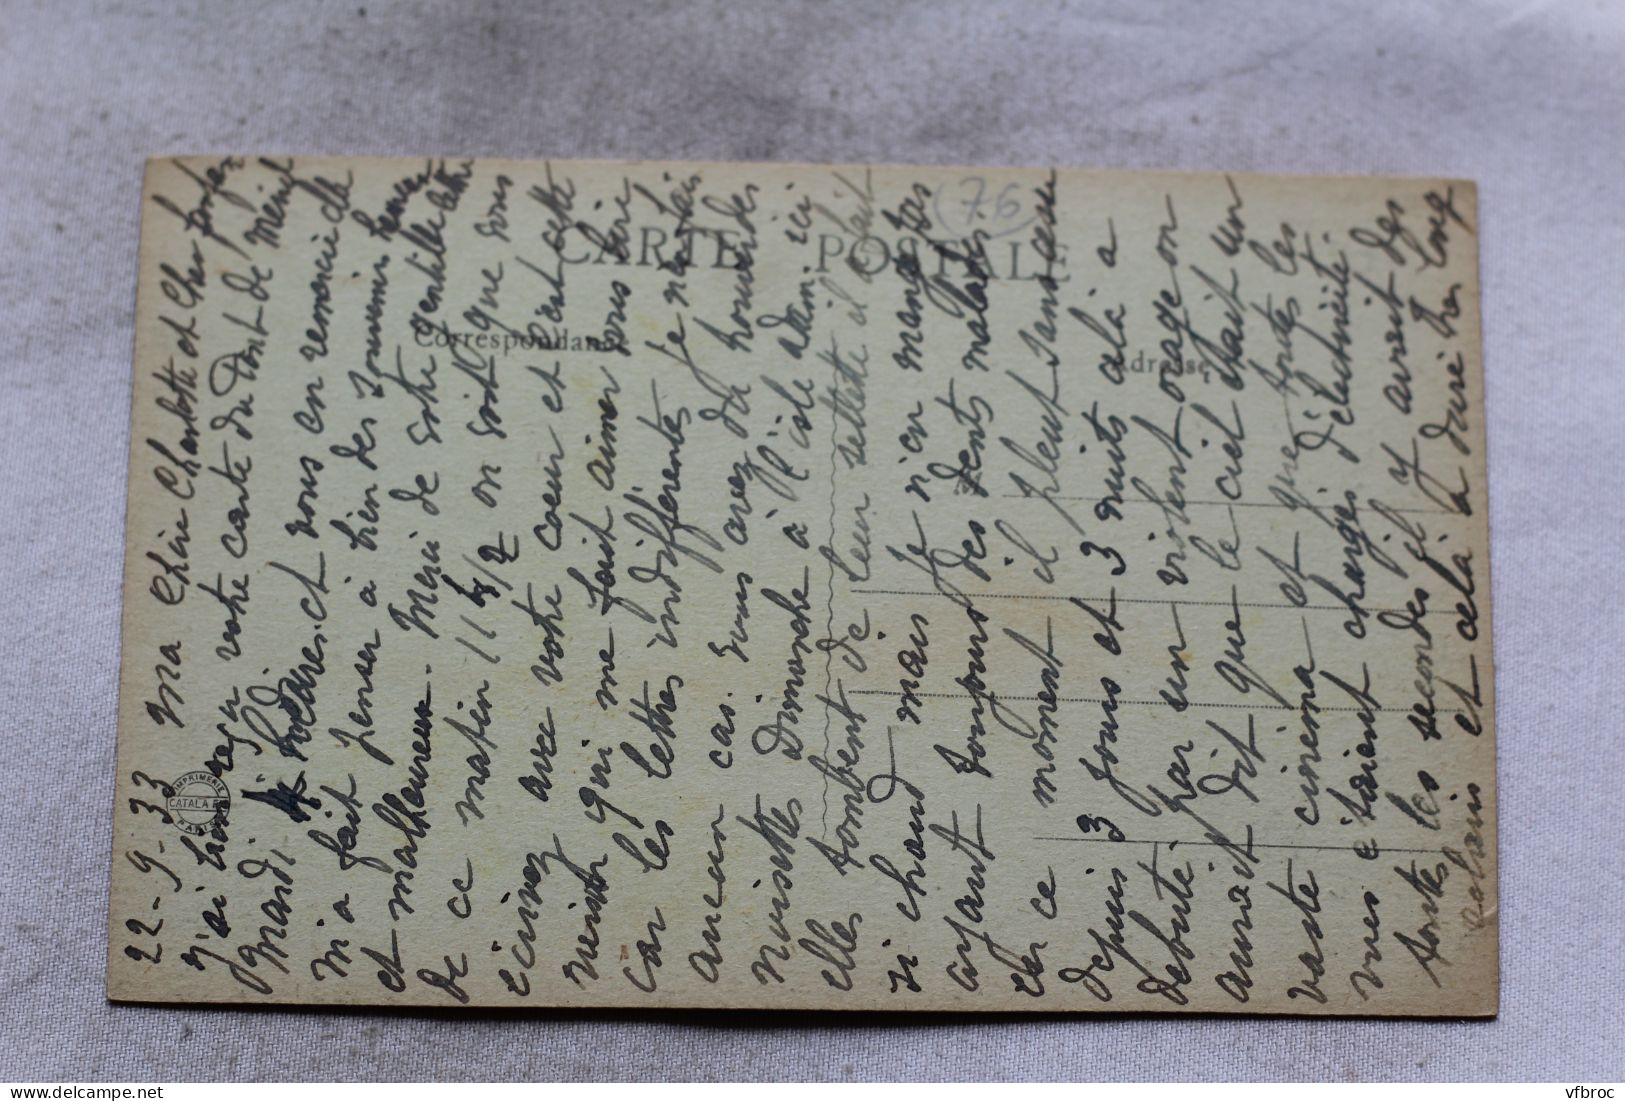 22-9-33 Ma Chère Charlotte et Cher
j'ai bien reçu votre carte du Pont de Menil
Mardi, et vous en remercie de
m'a fait penser à bien des souvenirs heureux
et malheureux. Merci de votre gentille lettre
de ce matin 11h 1/2 on sent que vous
écrivez avec votre coeur et c'est cette
qui me fait aimer vous lire
car les lettres indifférentes je n'en fais
aucun cas. vous avez du trouver des
noisettes Dimanche à l'Isle adam. ici
elles tombent de leur il fait
si chaud mais je n'en mange pas
ayant toujours des dents malades.
en ce moment il pleut sans cesse
depuis 3 jours et 3 nuits cela a
debuté par un violent orage on
aurait dit que le ciel était un
vaste cinema et que toutes les
vues étaient changé d'électricité.
toutes les secondes il y avait des
éclairs et cela a duré très long
CARTE POSTALE
Correspondance
Adresse
M
(76
IMPRIMERIE
CATALA F
PARIS
vfbroc